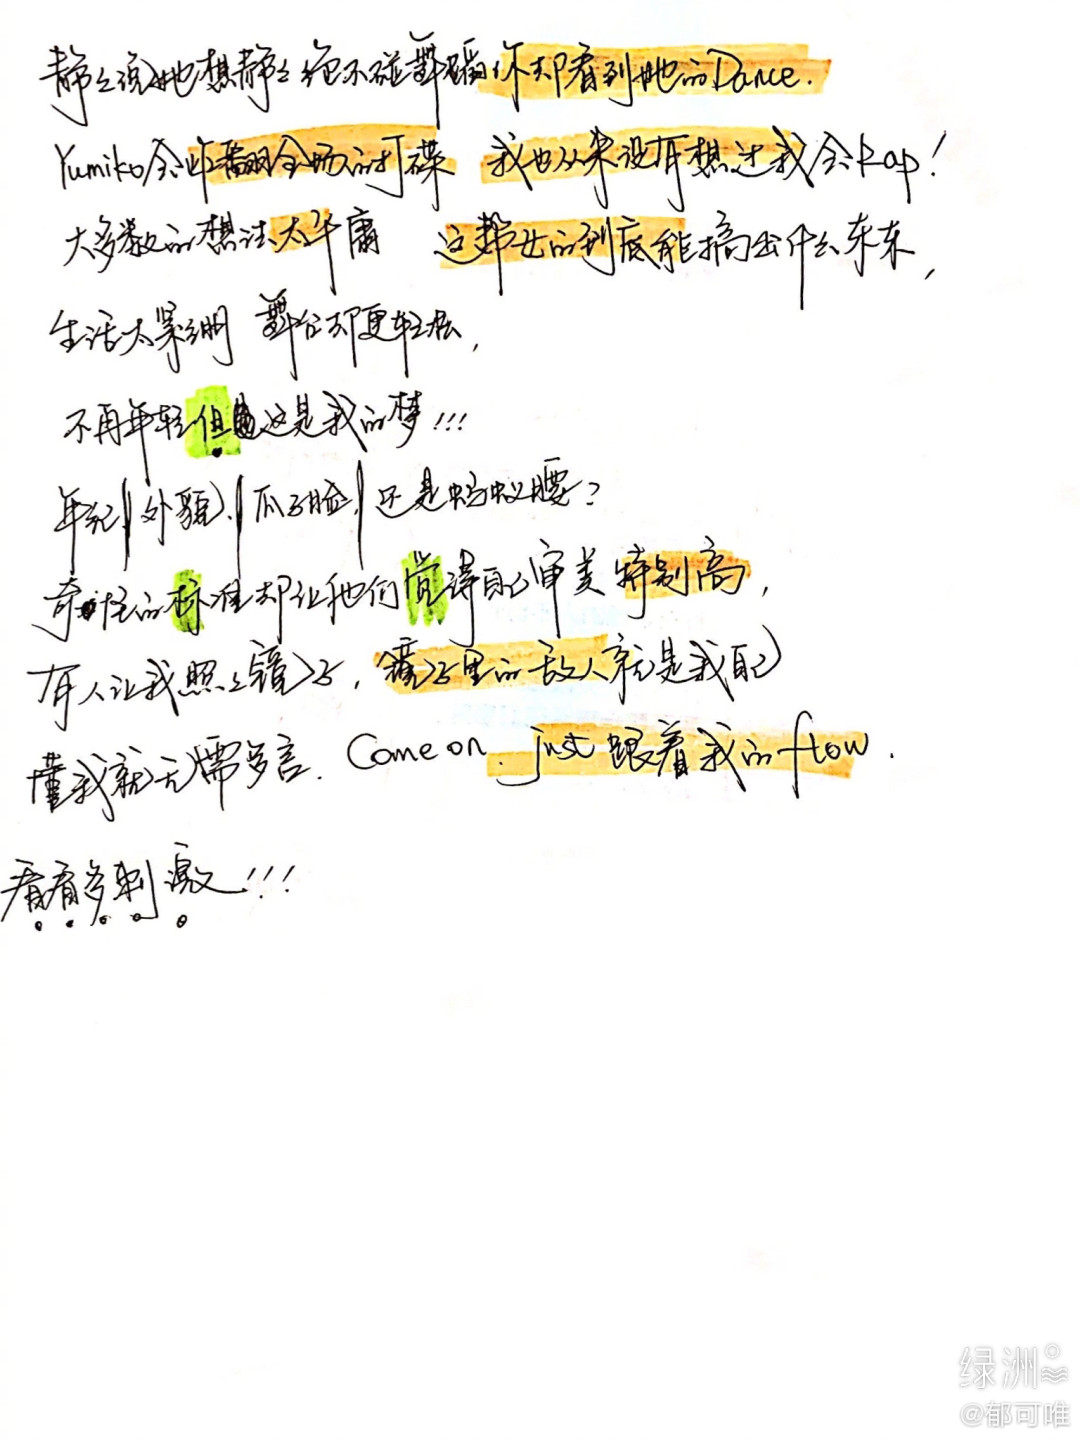 静静说她想静静绝不碰舞蹈 你却看到她的Dance.
Yumiko会炸翻全场的打碟 我也从来没有想过我会Rap!
大多数的想法太平庸 这帮女的到底能搞出什么东东,
生活太紧绷 舞台却更轻松,
不再年轻但这是我的梦!!!
年纪|外貌|瓜子脸|还是蚂蚁腰?
奇怪的标准却让他们觉得自己审美特别高,
有人让我照照镜子,镜子里的敌人就是我自己
懂我就无需多言. Come on. just 跟着我的flow.
看看多刺激!!!
绿洲
@郁可唯